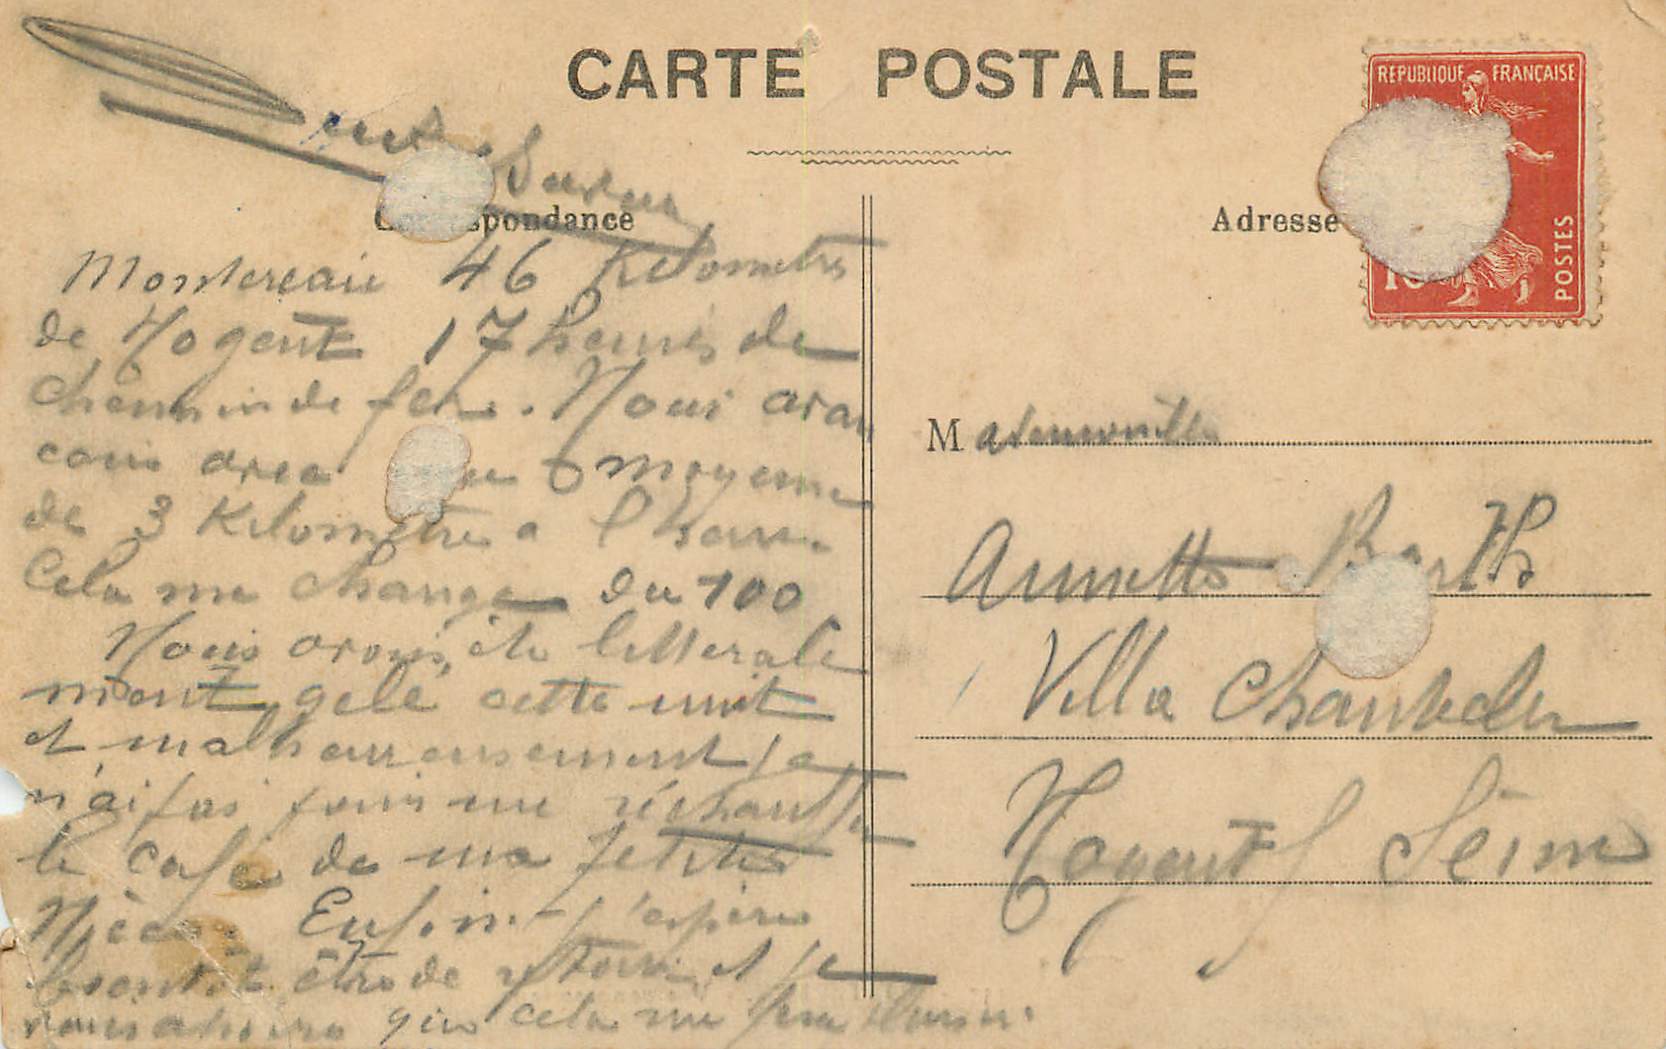 CARTE POSTALE
REPUBLIQUE FRANÇAISE
POSTES
10
Correspondance
Adresse
Montereau 46 Kilometres
de Nogent 17 heures de
chemin de fer. Nous avan
cons avec une moyenne
de 3 Kilometre a l'heure.
Cela me change du 100
Nous avons été litterale
ment gelé cette nuit
et malheureusement je
n'ai pas pour me réchauffer
le café de ma petite
Nièce. Enfin j'espère
bientôt être de retour et je
vous assure que cela me fera plaisir.
Mademoiselle
Annette Barth
Villa Chantecler
Nogent s/ Seine